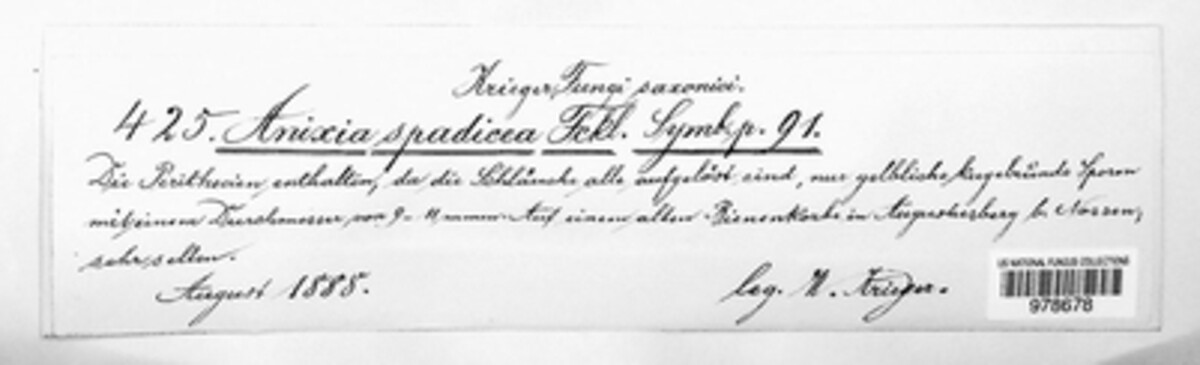 Krieger, Fungi saxonici.
425. Anixia spadicea Fckl. Symb. p. 91.
Die Perithecien enthalten, da die Schläuche alle aufgelöst sind, nur gelbliche kugelrunde Sporen
mit einem Durchmesser von 9-11 mmm. Auf einem alten Bienenkorbe in Augustusberg b. Nossen,
sehr selten.
August 1888.
leg. W. Krieger.
US NATIONAL FUNGUS COLLECTIONS
978678